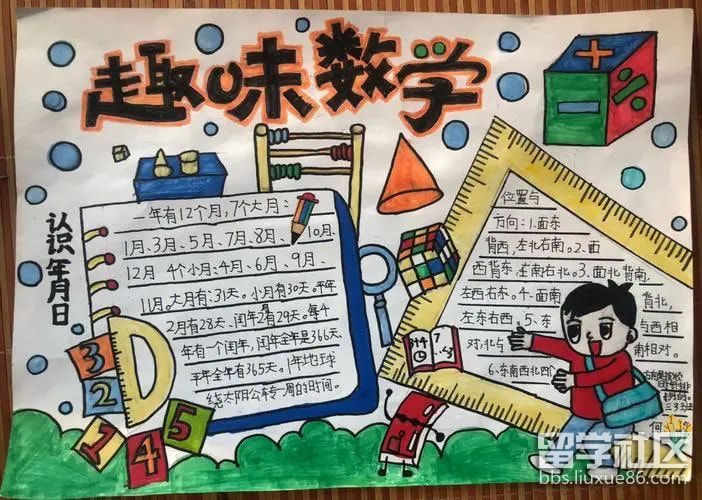 趣味数学
认识年月日
一年有12个月,7个大月:
1月、3月、5月、7月、8月、10月、
12月 4个小月:4月、6月、9月、
11月。大月有:31天。小月有30天。平年
2月有28天、闰年2月有29天。每4
年有一个闰年,闰年全年是366天
平年全年有365天。1年地球
绕太阳公转一周的时间。
位置与
方向:1.面东
背西,左北右南。2.面
西背东,左南右北。3.面北背南,
左西右东。4.面南背北,
左东右西。5.东与西相
对,北与南相对。
6.东南西北四个
方向是按
三3班
何
3
2
1
4
5
+
-
÷
留学社区
bbs.liuxue86.com